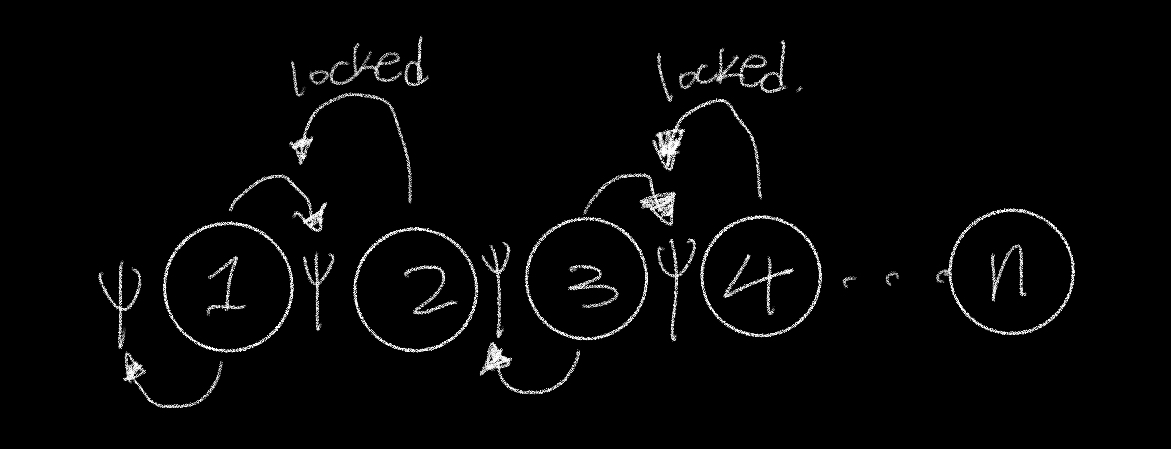 locked locked.
ψ 1 ψ 2 ψ 3 ψ 4 . . . n